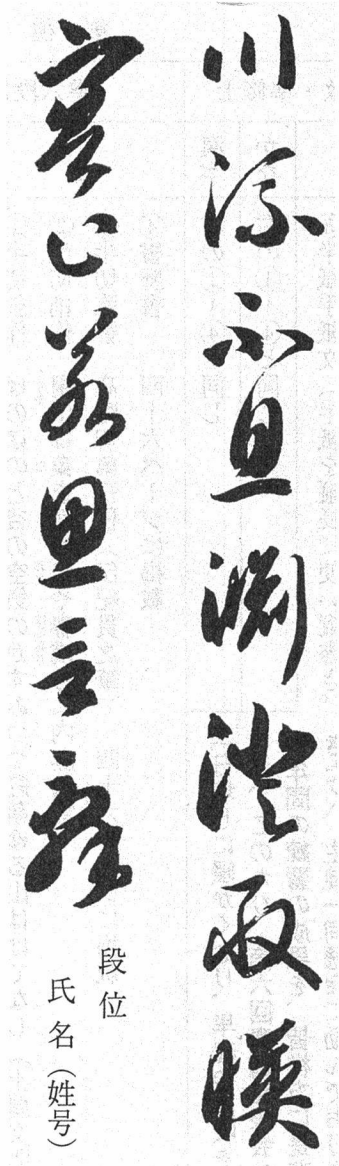 川流不息淵澄取暎
容止若思言辞
段位
氏名(姓号)